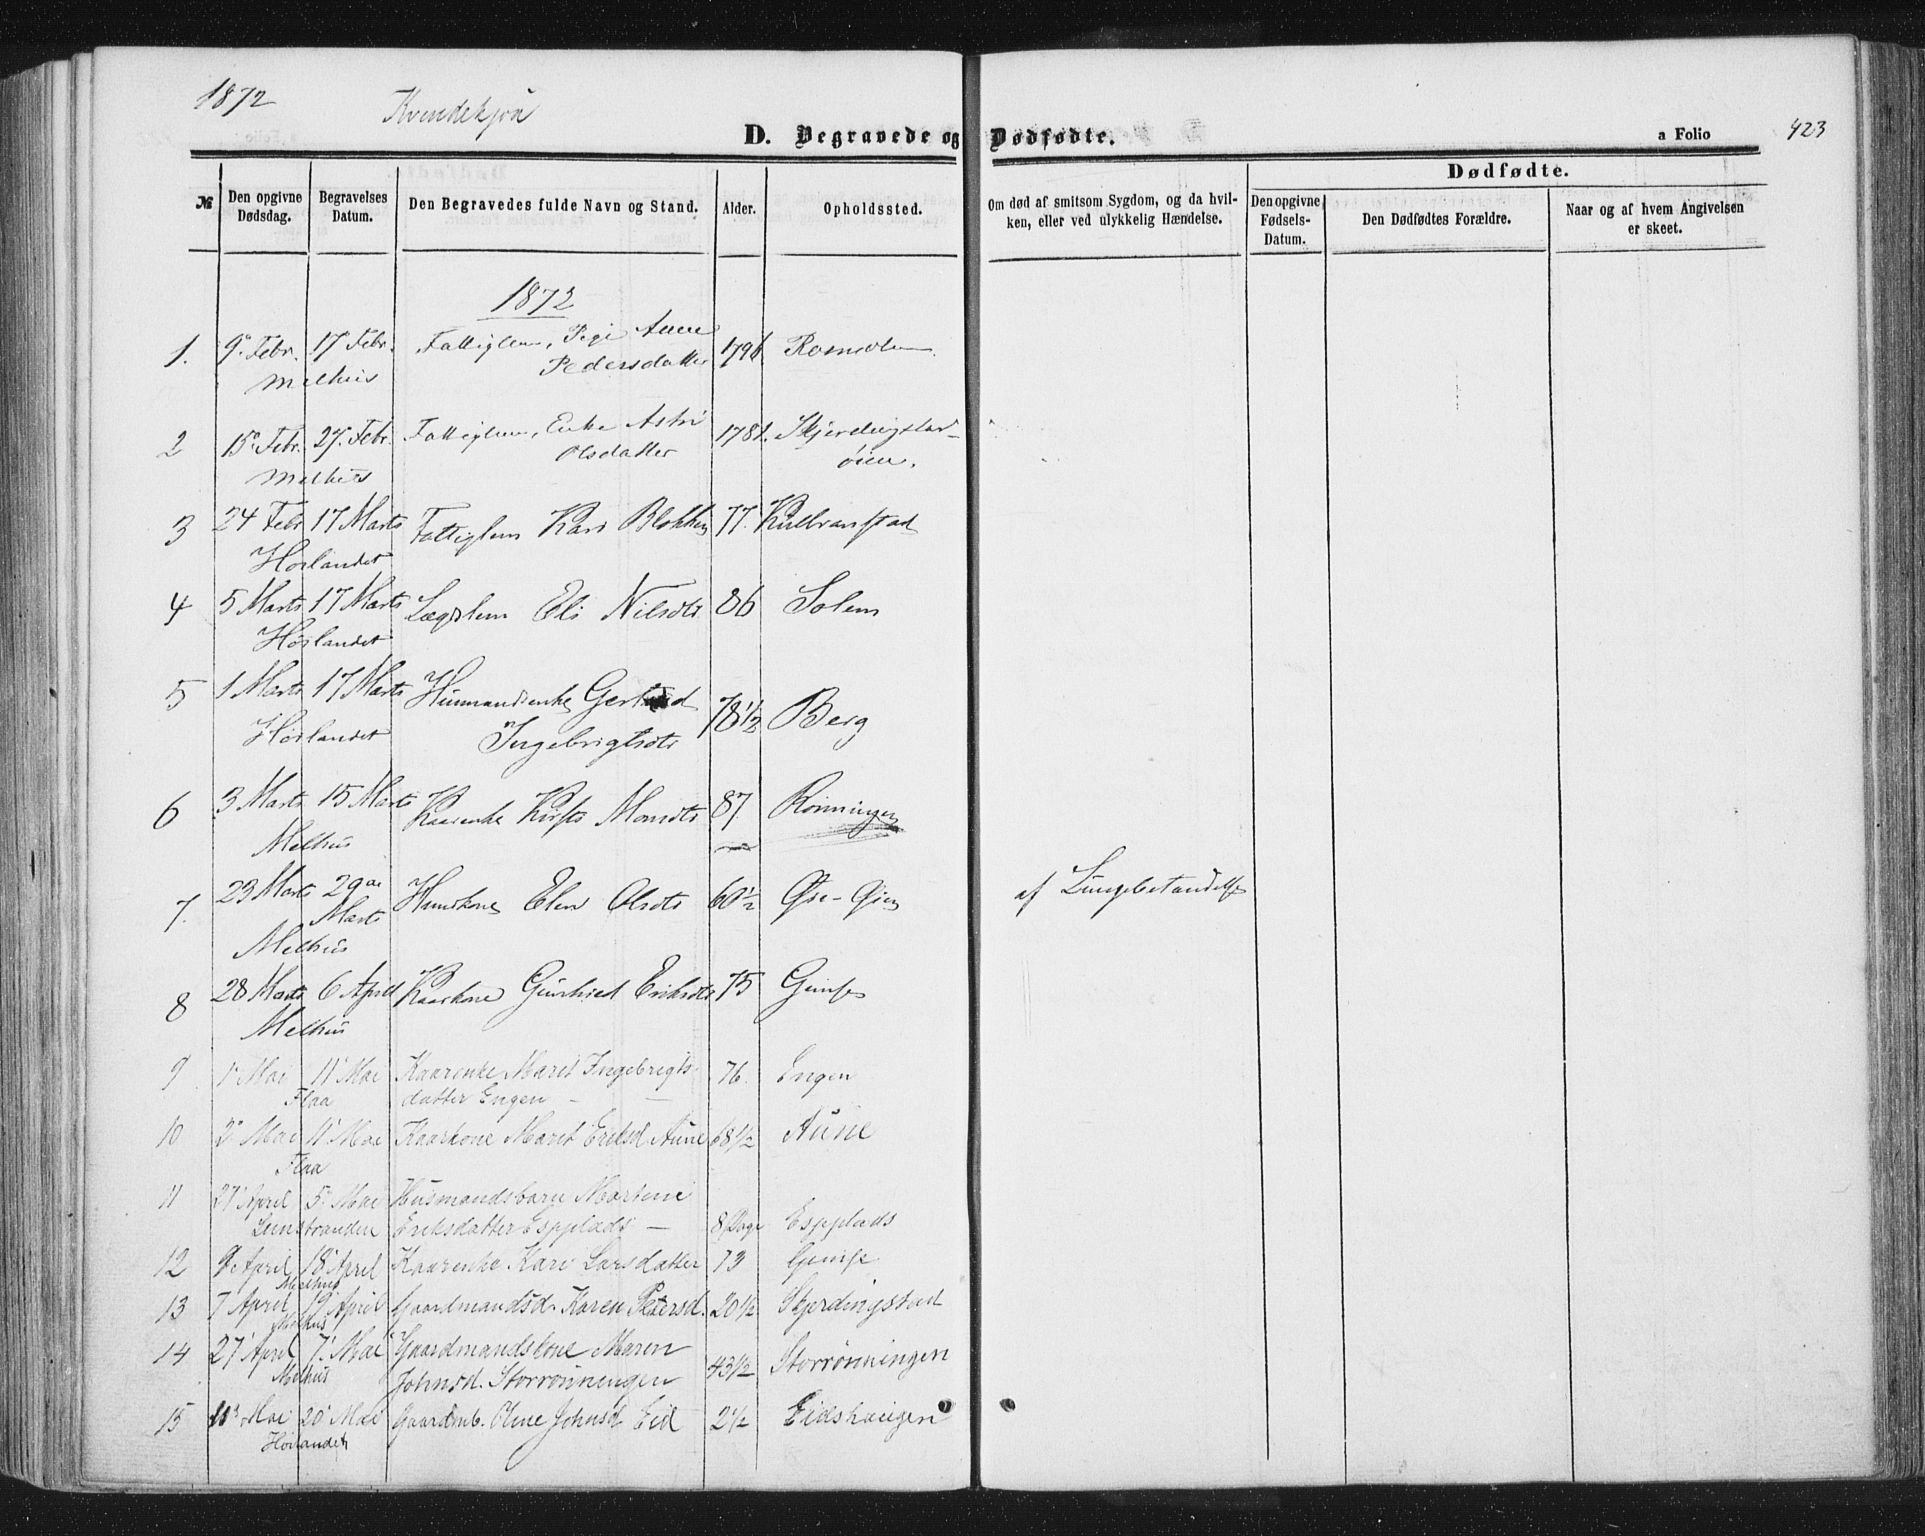 1872
Kvindekjøn
D. Begravede og Dødfødte.
a Folio 423
№
Den opgivne Dødsdag.
Begravelses Datum.
Den Begravedes fulde Navn og Stand.
Alder.
Opholdssted.
Om død af smitsom Sygdom, og da hvilken, eller ved ulykkelig Hændelse.
Dødfødte.
Den opgivne Fødsels-Datum.
Den Dødfødtes Forældre.
Naar og af hvem Angivelsen er skeet.
1872
1. 9 Febr. 17 Febr. Fattiglem, Pige Anne 1796
Pedersdatter
Melhus
2 15 Febr. 27 Febr. Fattiglem, Enke Astri 1781. Skjerdingstad-
Olsdatter øien.
Melhus
3 24 Febr 17 Marts Fattiglem Kari Blokken 77 Kulbranstad
Høilandet
4 5 Marts 17 Marts Lægdslem Eli Nilsdtr 86 Solem
Høilandet
5 1 Marts 17 Marts Huusmandsenke Gertrud 78 1/2 Berg
Høilandet Ingebrigtsdtr
6 3 Marts 15 Marts Kaarenke Kirsti 87 Rønningen
Melhus
7. 23 Marts 29de Marts Huuskone Elen Olsdtr 60 1/2 Øie af Lungebetændelse
Melhus
8 28 Marts 6 April Kaarkone Gunhild Eriksdtr 75 Gimse
Melhus
9 1 Mai 11 Mai Kaarenke Marit Ingebrigts- 76. Engen
Flaa datter Engen
10 2 Mai 11 Mai Kaarkone Marit Eriksd Aune 68 1/2 Aune
Flaa
11 27 April 5 Mai Husmandsbarn Martine
Leinstranden Eriksdatter Espplads 8 Dage Espplads
12 9 April 18 April Kaarenke Kari Larsdatter 73 Gimse
Melhus
13 7 April 19 April Gaardmandsd. Karen Petersd. 20 1/2 Skjerdingstad
Melhus
14 27 April 7 Mai Gaardmandskone Maren
Melhus Johnsd. Storrønningen 43 1/2 Storrønningen
15 11 Mai 20 Mai Gaardmb. Oline Johnsd Eid 2 1/2 Eidshaugen
Høilandet